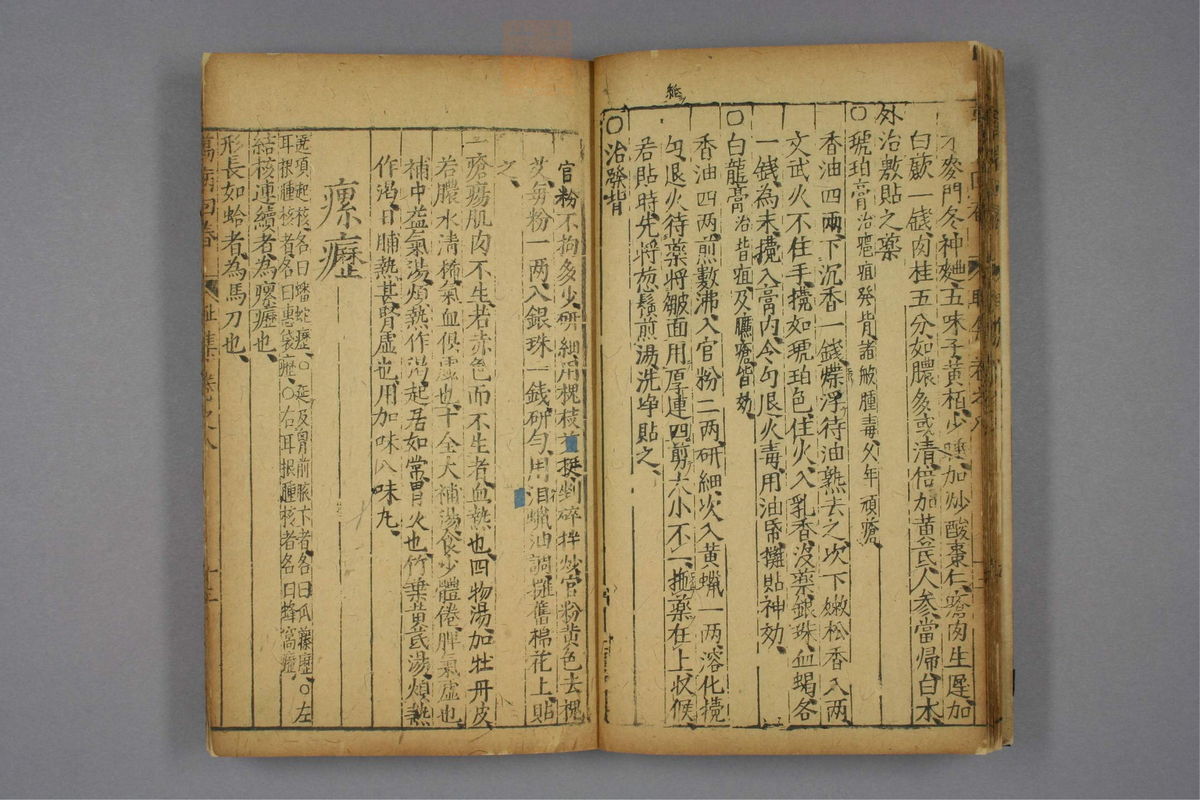 不麥門冬神麯五味子黃栢少睡加炒酸棗仁瘡肉生遲加
白蘞一錢肉桂五分如膿多或清倍加黃芪人參當歸白朮
外治敷貼之藥
○琥珀膏治癰疽發背諸般腫毒久年頑瘡
香油四兩下沉香一錢煠浮待油熟去之次下嫩松香八兩
文武火不住手攪如琥珀色住火入乳香沒藥銀珠血竭各
一錢為末攪入膏內令勻退火毒用油帋攤貼神効
○白龍膏治背疽及臁瘡皆効
香油四兩煎數沸入官粉二兩研細次入黃蠟一兩溶化攪
勻退火待藥將皺面用厚連四剪大小不一拖藥在上收候
若貼時先將葱鬚煎湯洗净貼之
○治發背
官粉不拘多少研細用槐枝挺剉碎拌炒官粉黃色去槐
艾每粉一兩入銀珠一錢研勻用蠟油調攤舊棉花上貼
之
一瘡瘍肌肉不生若赤色而不生者血熱也四物湯加牡丹皮
若膿水清稀氣血俱虛也十全大補湯食少體倦脾氣虛也
補中益氣湯煩熱作渴起居如常胃火也竹葉黃芪湯煩熱
作渴日晡熱甚腎虛也用加味八味丸
瘰癧
遶項起核名曰蟠蛇癧○延及胷前腋下者名曰瓜藤癧○左
耳根腫核者名曰惠袋癧○右耳根腫核者名曰蜂窩癧
結核連續者為瘰癧也
形長如蛤者為馬刀也
萬病回春 卷之八